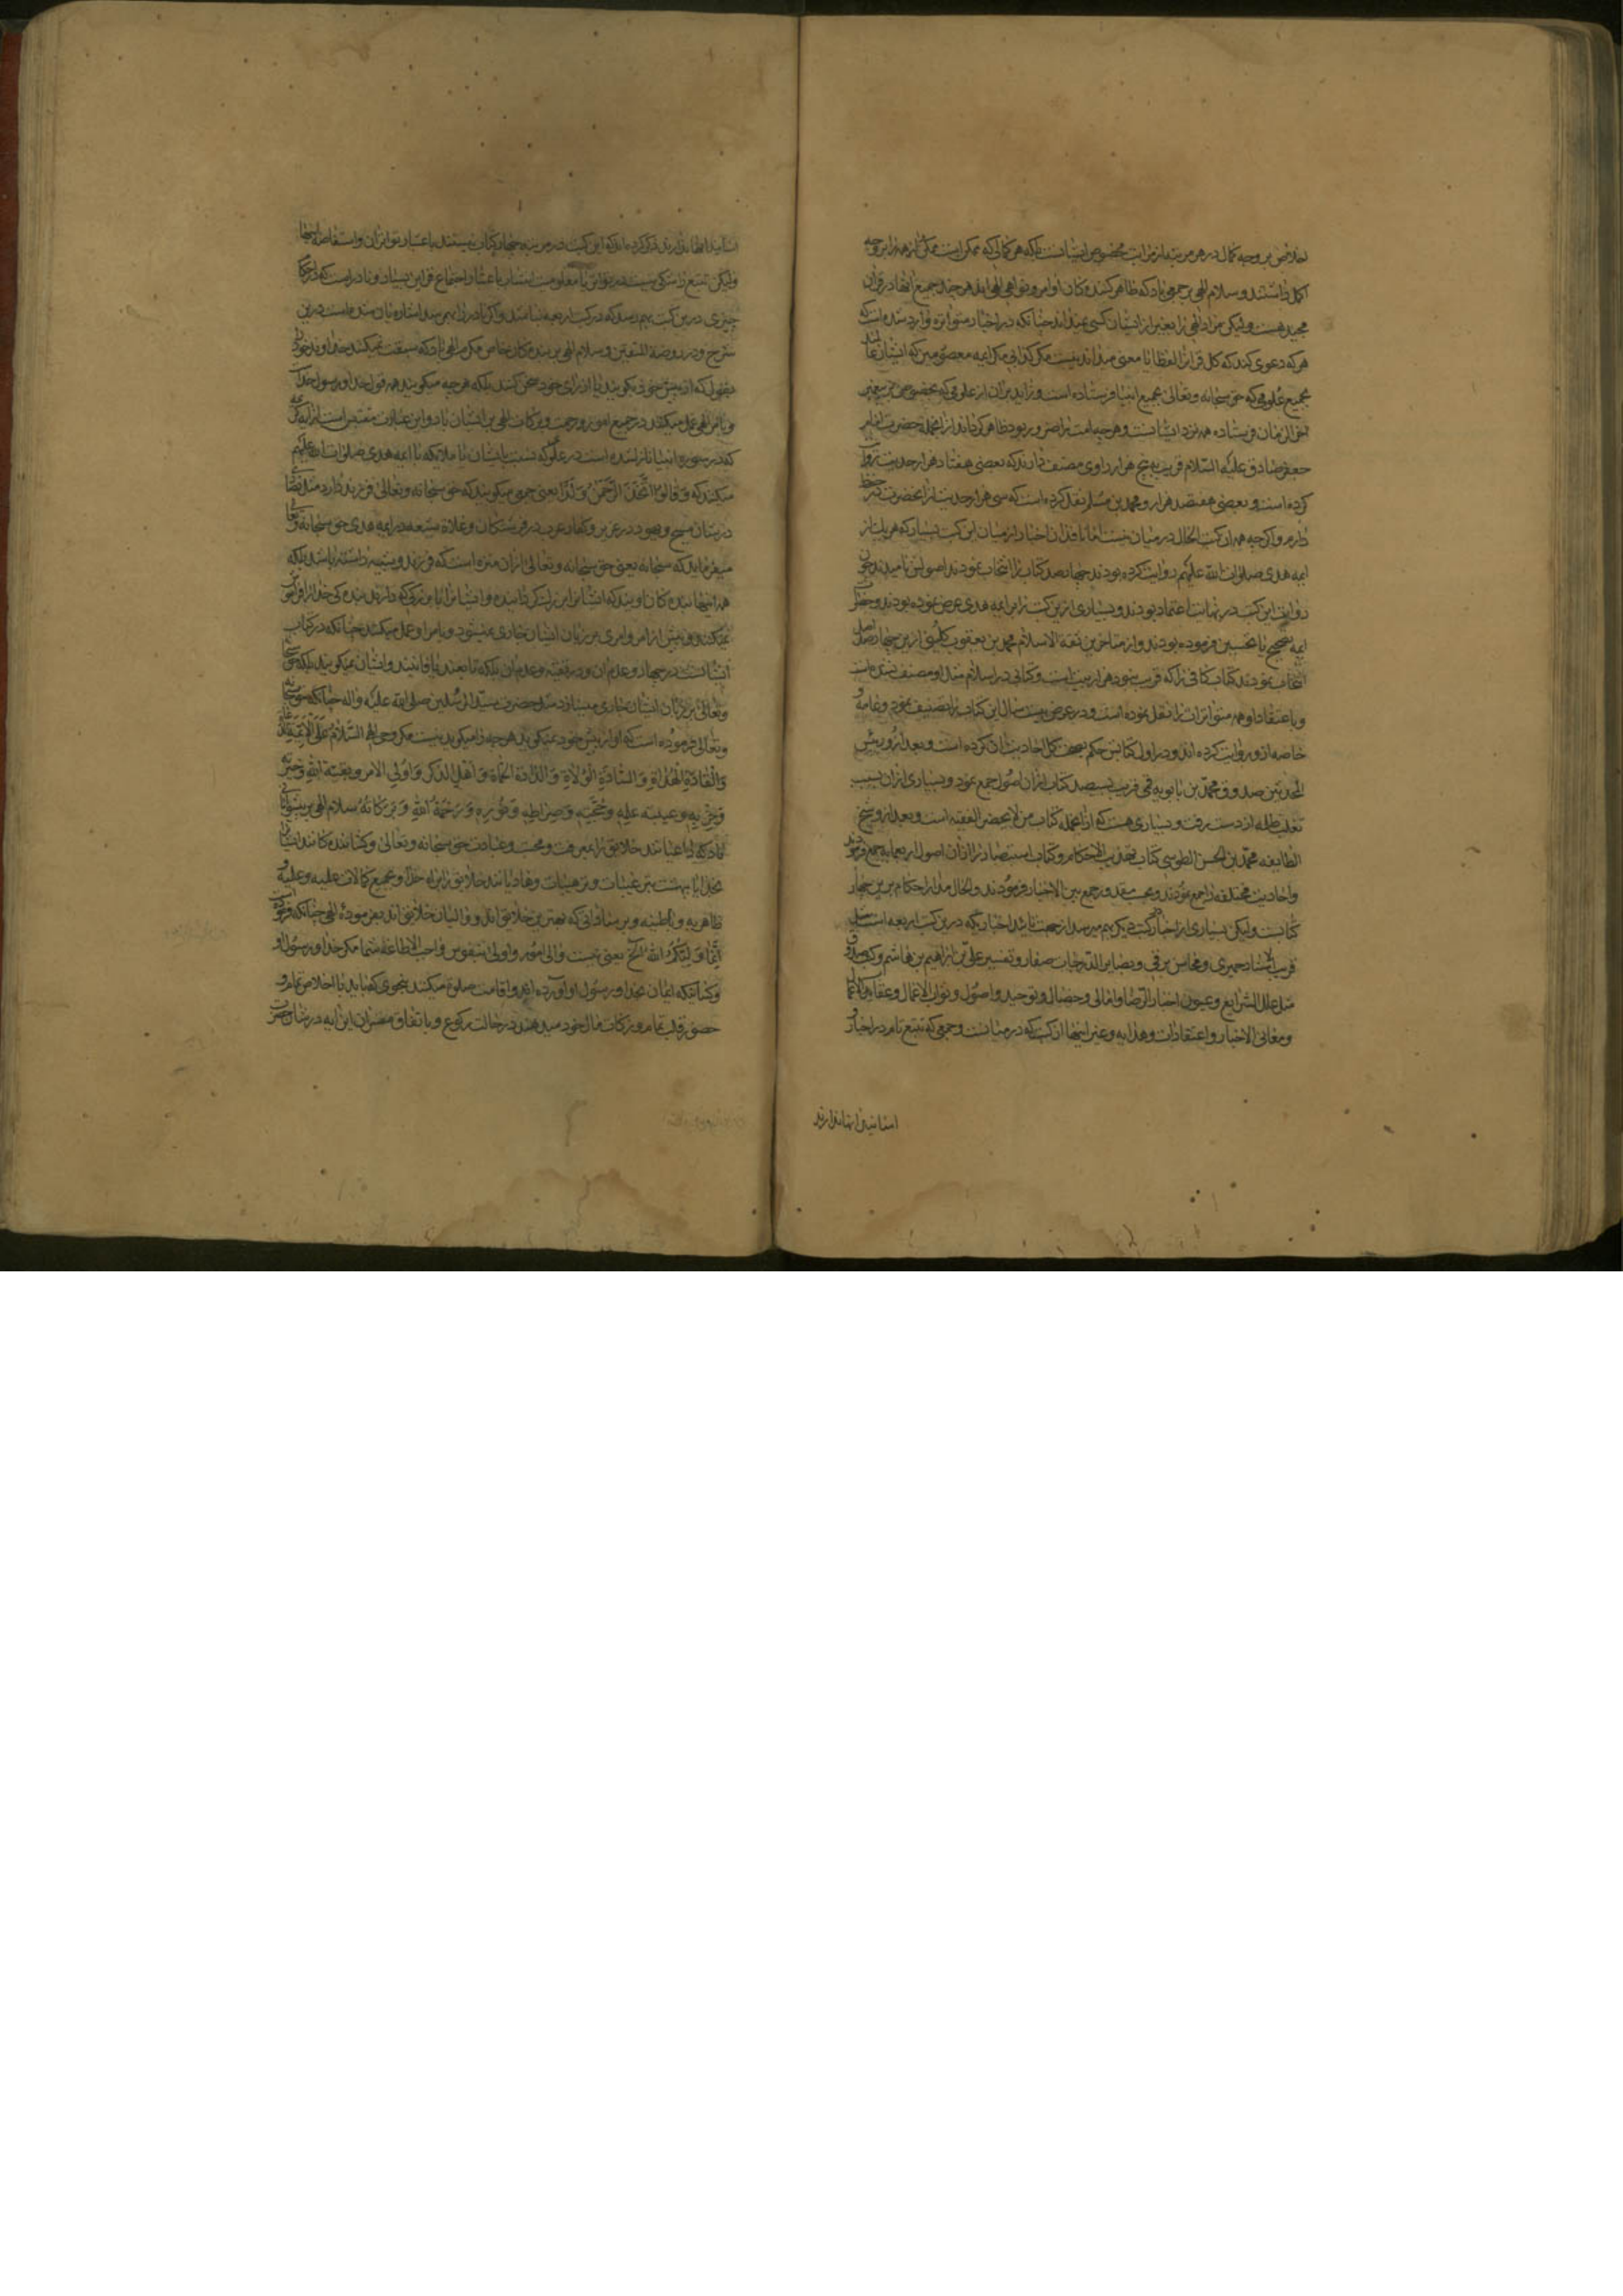 اخلاص بر وجه کمال در هر مرتبه از مراتب مخصوص ایشانست بلکه هر کمالی که ممکن است ممکن از همه بر وجه
اکمل داشتند و سلام الهی بر جمعی باد که ظاهر کننده کان اوامر و نواهی الهی‌اند هر چند جمیع آنها در قرآن
مجید هست و لیکن مراد الهی را بغیر از ایشان کسی نمیداند چنانکه در اخبار متواتره وارد شده است که
هر که دعوی کند که کل قرآن را لفظا یا معنی میداند نیست مگر کذابی مگر ایمه معصومین که ایشان عالمند
بجمیع علومی که حق سبحانه و تعالی بجمیع انبیا فرستاده است و زاید بر آن از علومی که مخصوص پیغمبر
آخر الزمان فرستاده همه نزد ایشانست و هر چه امت را ضرور بود ظاهر کردند از آنجمله حضرت امام
جعفر صادق علیه السلام قریب به پنج هزار راوی مصنف دارند که بعضی هفتاد هزار حدیث روایت
کرده است و بعضی هفتصد هزار و محمد بن مسلم نقل کرده است که سی هزار حدیث از آنحضرت در حفظ
دارم و اگر چه همه آن کتب الحال در میان نیست اما ناقدان اخبار از میان این کتب بسیار که هر یک از
ایمه هدی صلوات الله علیهم روایت کرده بودند چهار صد کتاب را انتخاب نمودند و اصولش نامیدند چون
روایت این کتب در نهایت اعتماد بودند و بسیاری ازین کتب را بر ایمه هدی عرض نموده بودند و حضرات
ایمه تصحیح یا تحسین فرموده بودند و از متاخرین ثقة الاسلام محمد بن یعقوب کلینی ازین چهار صد اصل
انتخاب نمودند کتاب کافی را که قریب بنود هزار بیت است و کتابی در اسلام مثل او مصنف نشده است
و باعتقاد او همه متواتراتند نقل نموده است و در عرض بیست سال این کتاب را تصنیف نمود و عامه و
خاصه ازو روایت کرده‌اند و در اول کتابش حکم بصحت کل احادیث آن کرده است و بعد ازو رییس
المحدثین صدوق محمد بن بابویه قمی قریب بسیصد کتاب از آن اصول جمع نمود و بسیاری از آن بسبب
تغلب ظلمه از دست رفت و بسیاری هست که از آنجمله کتاب من لا یحضره الفقیه است و بعد ازو شیخ
الطایفه محمد بن الحسن الطوسی کتاب تهذیب الاحکام و کتاب استبصار را از آن اصول اربعمایه جمع فرمودند
و احادیث مختلفه را جمع نمودند و بحسب مقدور جمع بین الاخبار فرمودند و الحال مدار احکام برین چهار
کتابست و لیکن بسیاری از اخبار در کتب دیگر بهم میرسد از جهت تایید اخباریکه درین کتب اربعه است مثل
قرب الاسناد حمیری و محاسن برقی و بصایر الدرجات صفار و تفسیر علی بن ابراهیم بن هاشم و کتب صدوق
مثل علل الشرایع و عیون اخبار الرضا و امالی و خصال و توحید و اصول و ثواب الاعمال و عقاب الاعمال
و معانی الاخبار و اعتقادات و هدایه و غیر اینها از کتب که در میانست و جمعی که تتبع تام در اخبار و
اسانید آنها ندارند
اسانید آنها ندارند ذکر کرده‌اند که این کتب در مرتبه چهار کتاب نیستند باعتبار تواتر آن و استفاضه اینها
ولیکن تتبع را شکی نیست در تواتر یا معلومیت انتساب باعتبار اجتماع قراین بسیار و نادر است که در احکام
چیزی درین کتب بهم رسد که در کتب اربعه نباشد و اگر نادرا بهم رسد اشاره بآن شده است درین
شرح و در روضة المتقین و سلام الهی بر بنده‌کان خاص مکرم الهی باد که سبقت نمیکنند خداوند خود را
بقول که از پیش حق نمیکویند یا از رای خود سخن کنند بلکه هر چه میکویند همه قول خدا و رسول خداست
و بامر الهی عمل میکنند در جمیع امور و رحمت و برکات الهی بر ایشان باد و این عبارت مقتبس است از آیه کریمه
که در سوره انبیا نازل شده است در غلوی که نسبت بایشان یا ملایکه یا ایمه هدی صلوات الله علیهم
میکنند که وَقَالُوا اتَّخَذَ الرَّحْمَنُ وَلَدًا یعنی جمعی میکویند که حق سبحانه و تعالی فرزند دارد مثل نصاری
در شان مسیح و یهود در عزیر و کفار عرب در فرشتکان و غلاة شیعه در ایمه هدی حق سبحانه و تعالی
میفرماید که سبحانه یعنی حق سبحانه و تعالی از آن منزه است که فرزند و شبیه داشته باشد بلکه
همه اینها بنده‌کان اویند که ایشانرا بزرک کردانیده و ایشانرا یا مقربی که دارند بندکی خدا از
نمیکنند و پیش از امر او امری بر زبان ایشان جاری نمیشود و بامر او عمل میکنند چنانکه در کتاب
ایشانست در جهاد و عدم آن و در تقیه و عدم آن بلکه تابعند یا فانیند و ایشان نمیکویند بلکه حق سبحانه
و تعالی بر زبان ایشان جاری میسازد مثل حضرت سید المرسلین صلی الله علیه و اله چنانکه حق سبحانه
و تعالی فرموده است که او از پیش خود نمیکوید هر چه را میکوید نیست مکر وحی الهی السَّلَامُ عَلَى الْأَئِمَّةِ الدُّعَاةِ
وَالْقَادَةِ الْهُدَاةِ وَالسَّادَةِ الْوُلَاةِ وَالذَّادَةِ الْحُمَاةِ وَأَهْلِ الذِّكْرِ وَأُولِي الْأَمْرِ وَبَقِيَّةِ اللهِ وَخِيَرَتِهِ
وَحِزْبِهِ وَعَيْبَةِ عِلْمِهِ وَحُجَّتِهِ وَصِرَاطِهِ وَنُورِهِ وَرَحْمَةُ اللهِ وَبَرَكَاتُهُ سلام الهی بر پیشوایانی
باد که داعیانند خلایق را بمعرفت و محبت و عبادت حق سبحانه و تعالی و کشاننده‌کانند ایشان را
بخدا یا بهشت بترغیبات و ترهیبات و هادیانند خلایق را براه خدا و بجمیع کمالات علمیه و عملیه و
ظاهریه و باطنیه و بر ساداتی که بهترین خلایق‌اند و والیان خلایق‌اند بفرموده الهی چنانکه فرموده است
إنما ولیکم الله الخ یعنی نیست والی امور و اولی بنفوس و واجب الاطاعه شما مکر خدا و رسول او
و کسانیکه ایمان بخدا و رسول او آورده‌اند و اقامت صلوة میکنند بنحوی که باید با اخلاص تمام و
حضور قلب تمام و زکات مال خود میدهند در حالت رکوع و باتفاق مفسران این آیه در شان حضرت